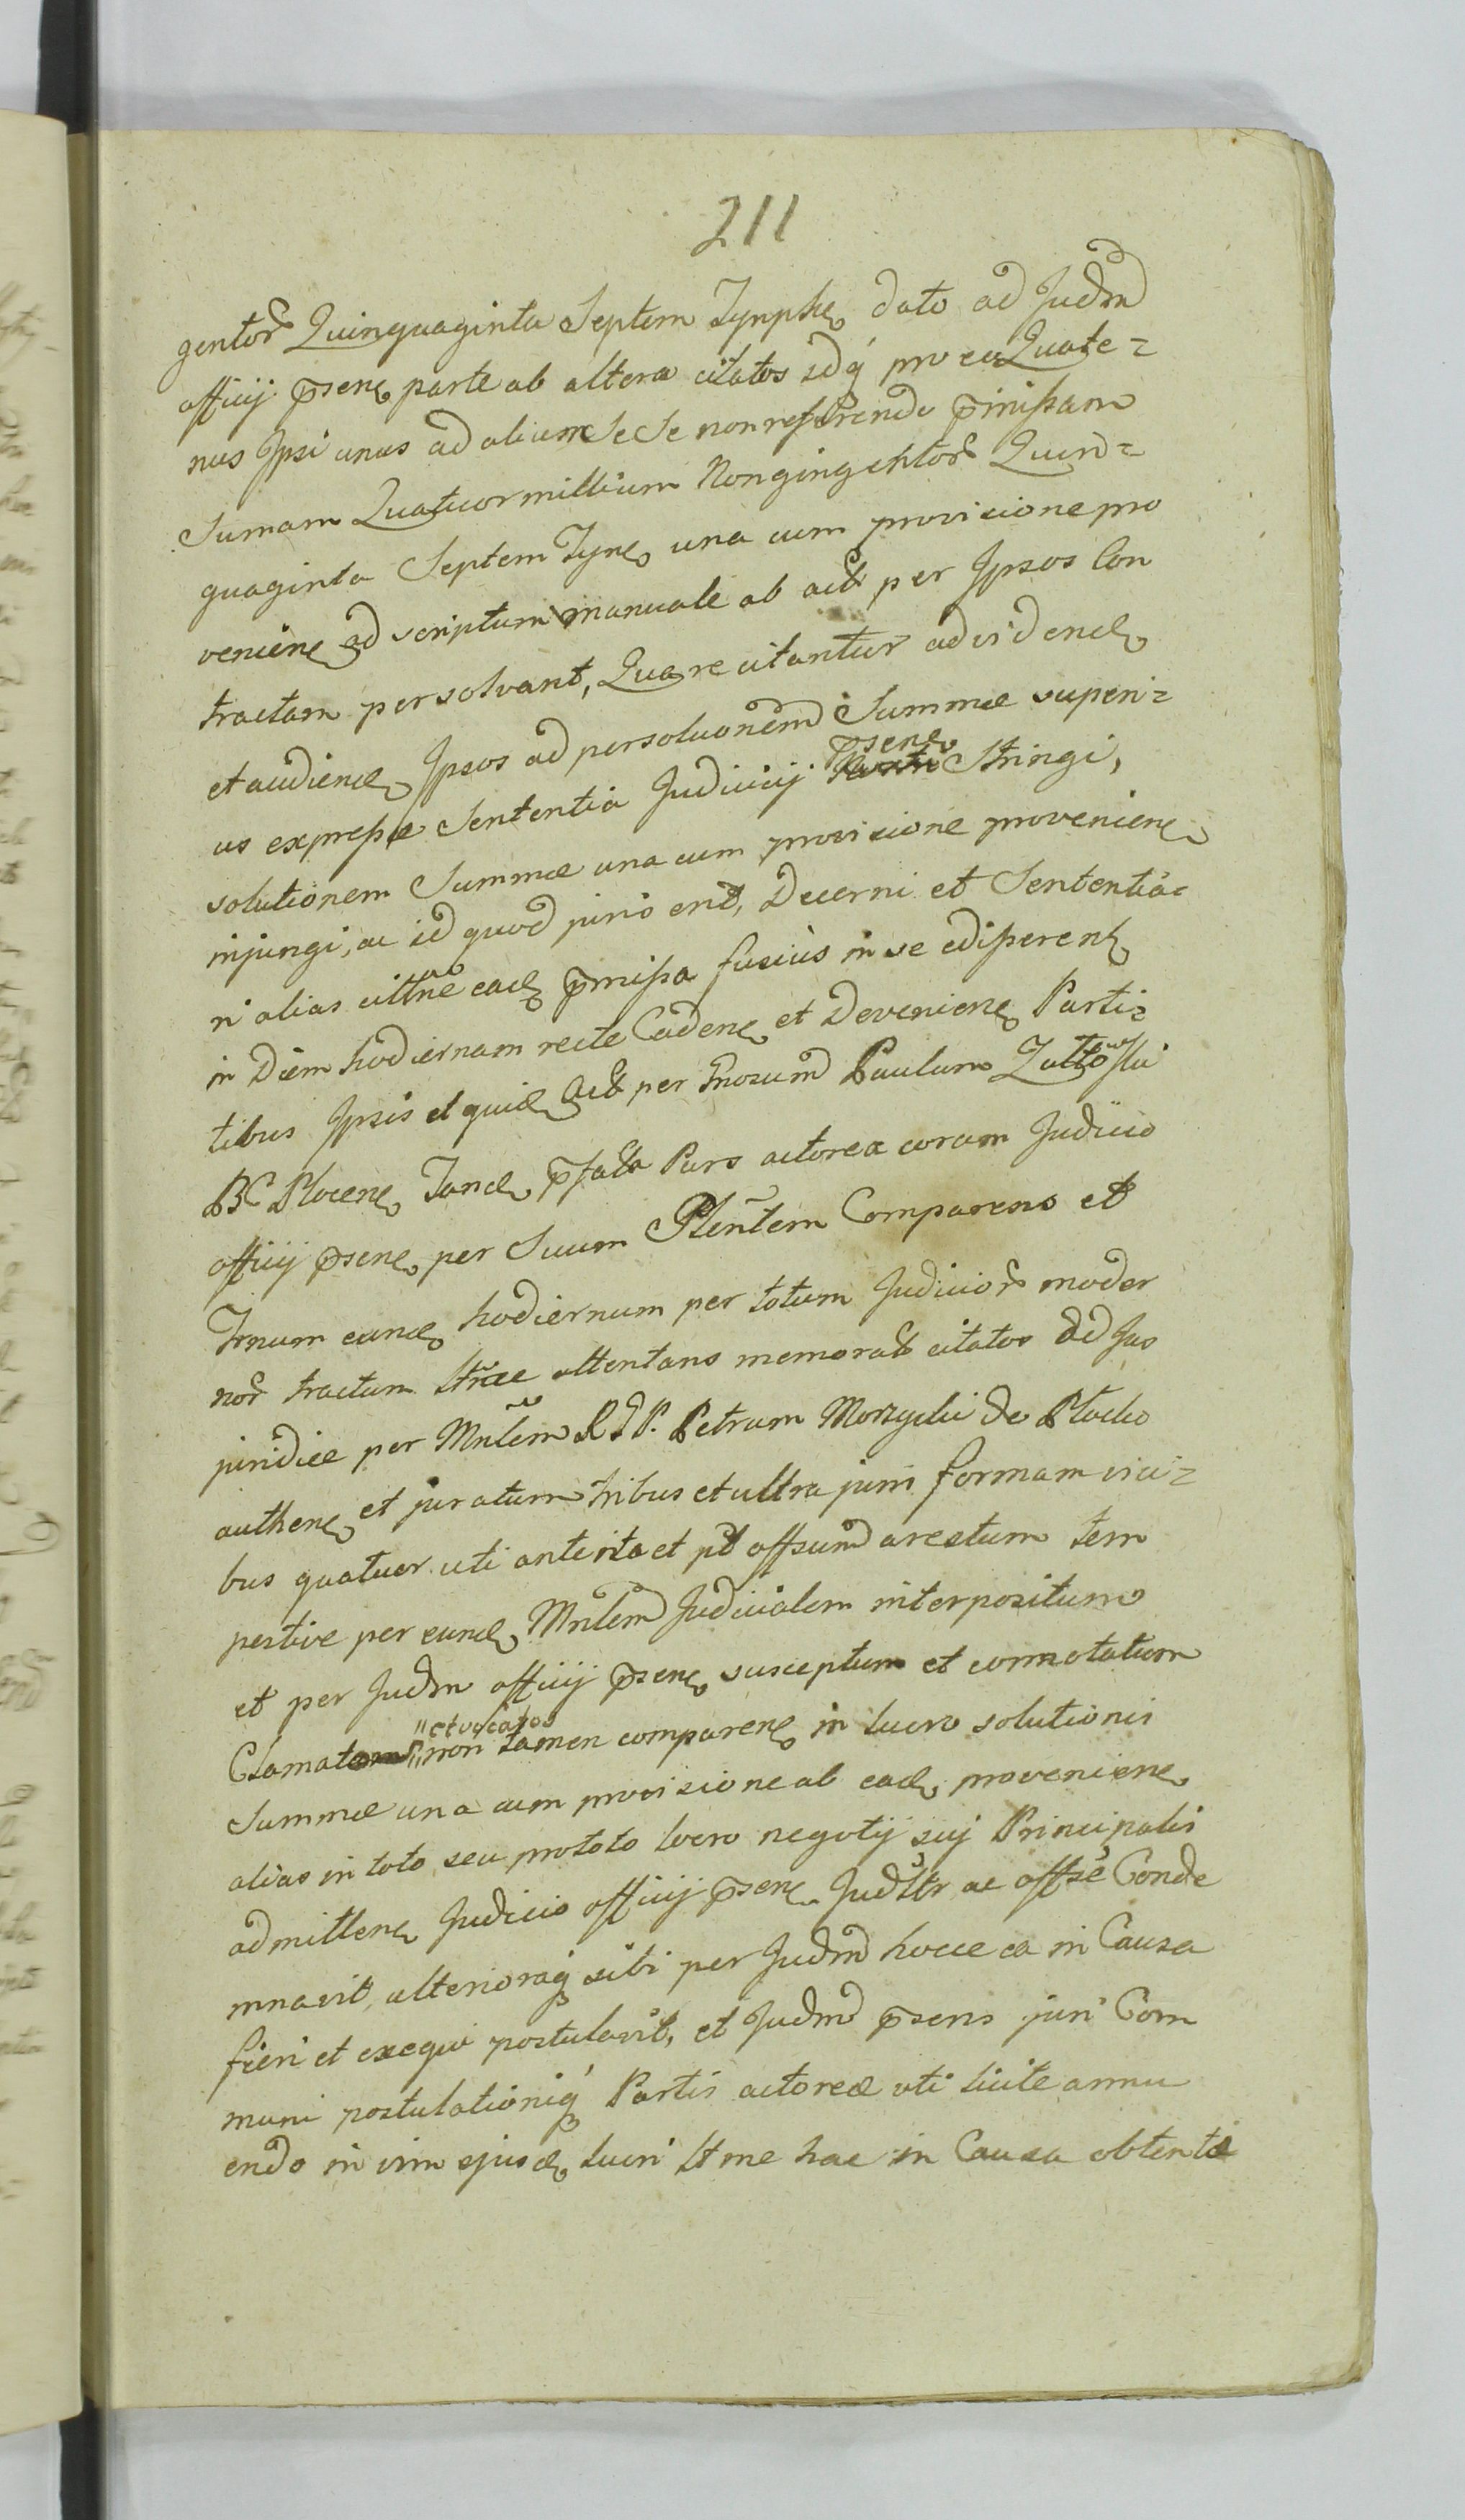 211
gentor Quinquaginta Septem Tynphe dato ad Judm
officij psene parte ab altera citatos idq pro ea Quate=
nus Ipsi unus ad alium se se non referendo pmissam
Sumam Quatuor millium Nongingentor Quin=
quaginta Septem Tyne una cum provisione pro
veniene ad scriptum manuale ab act per Ipsos Con
tractam persolvant, Quare citantur ad videnc
et audiend Ipsos ad persolvonem Summæ superi=
psene
us expressæ Sententia Judicij Stringi,
solutionem Summæ una cum provisione proveniene
injungi, ac id quod juris erit, Decerni et Sententia
ri alias citne eade pmissa fusius in se edisserent
in Diem hodiernam recte Cadene et Deveniene Parti=
tibus Ipsis et quide Act per Gnosum Paulum Zutowski
BC Plocene Tande pfata Pars actorea coram Judicio
officij psene per Suum Plentem Comparens et
Trnum eunde hodiernum per totum Judicior moder
nor tractum Itrae attentans memorat citatos ad Jus
juridice per Mnlem RJP. Petrum Morzycki de Plocko
authene et juratum tribus et ultra juris formam vici=
bus quatuor uti ante ita et pt offsum arestum tem
pestive per eunde Mnlem Judicialem interpositum
et per Judm officij psene susceptum et connotatum
et vocatos
Clamatos non tamen comparene in lucro solutionis
Summæ una cum provisione ab eade proveniene
alias in toto seu pro toto lucro negotij sui Principalis
admittene Judicio officij psene Judltr ac offse Conde
mnavit, ulterioraq sibi per Judm hocce ea in Causa
fieri et exequi postulavit, et Judm psens juri Com
muni postulationiq Partis actoreæ uti licite annu
endo in vim ejusde lucri Itme hac in Causa obtenta